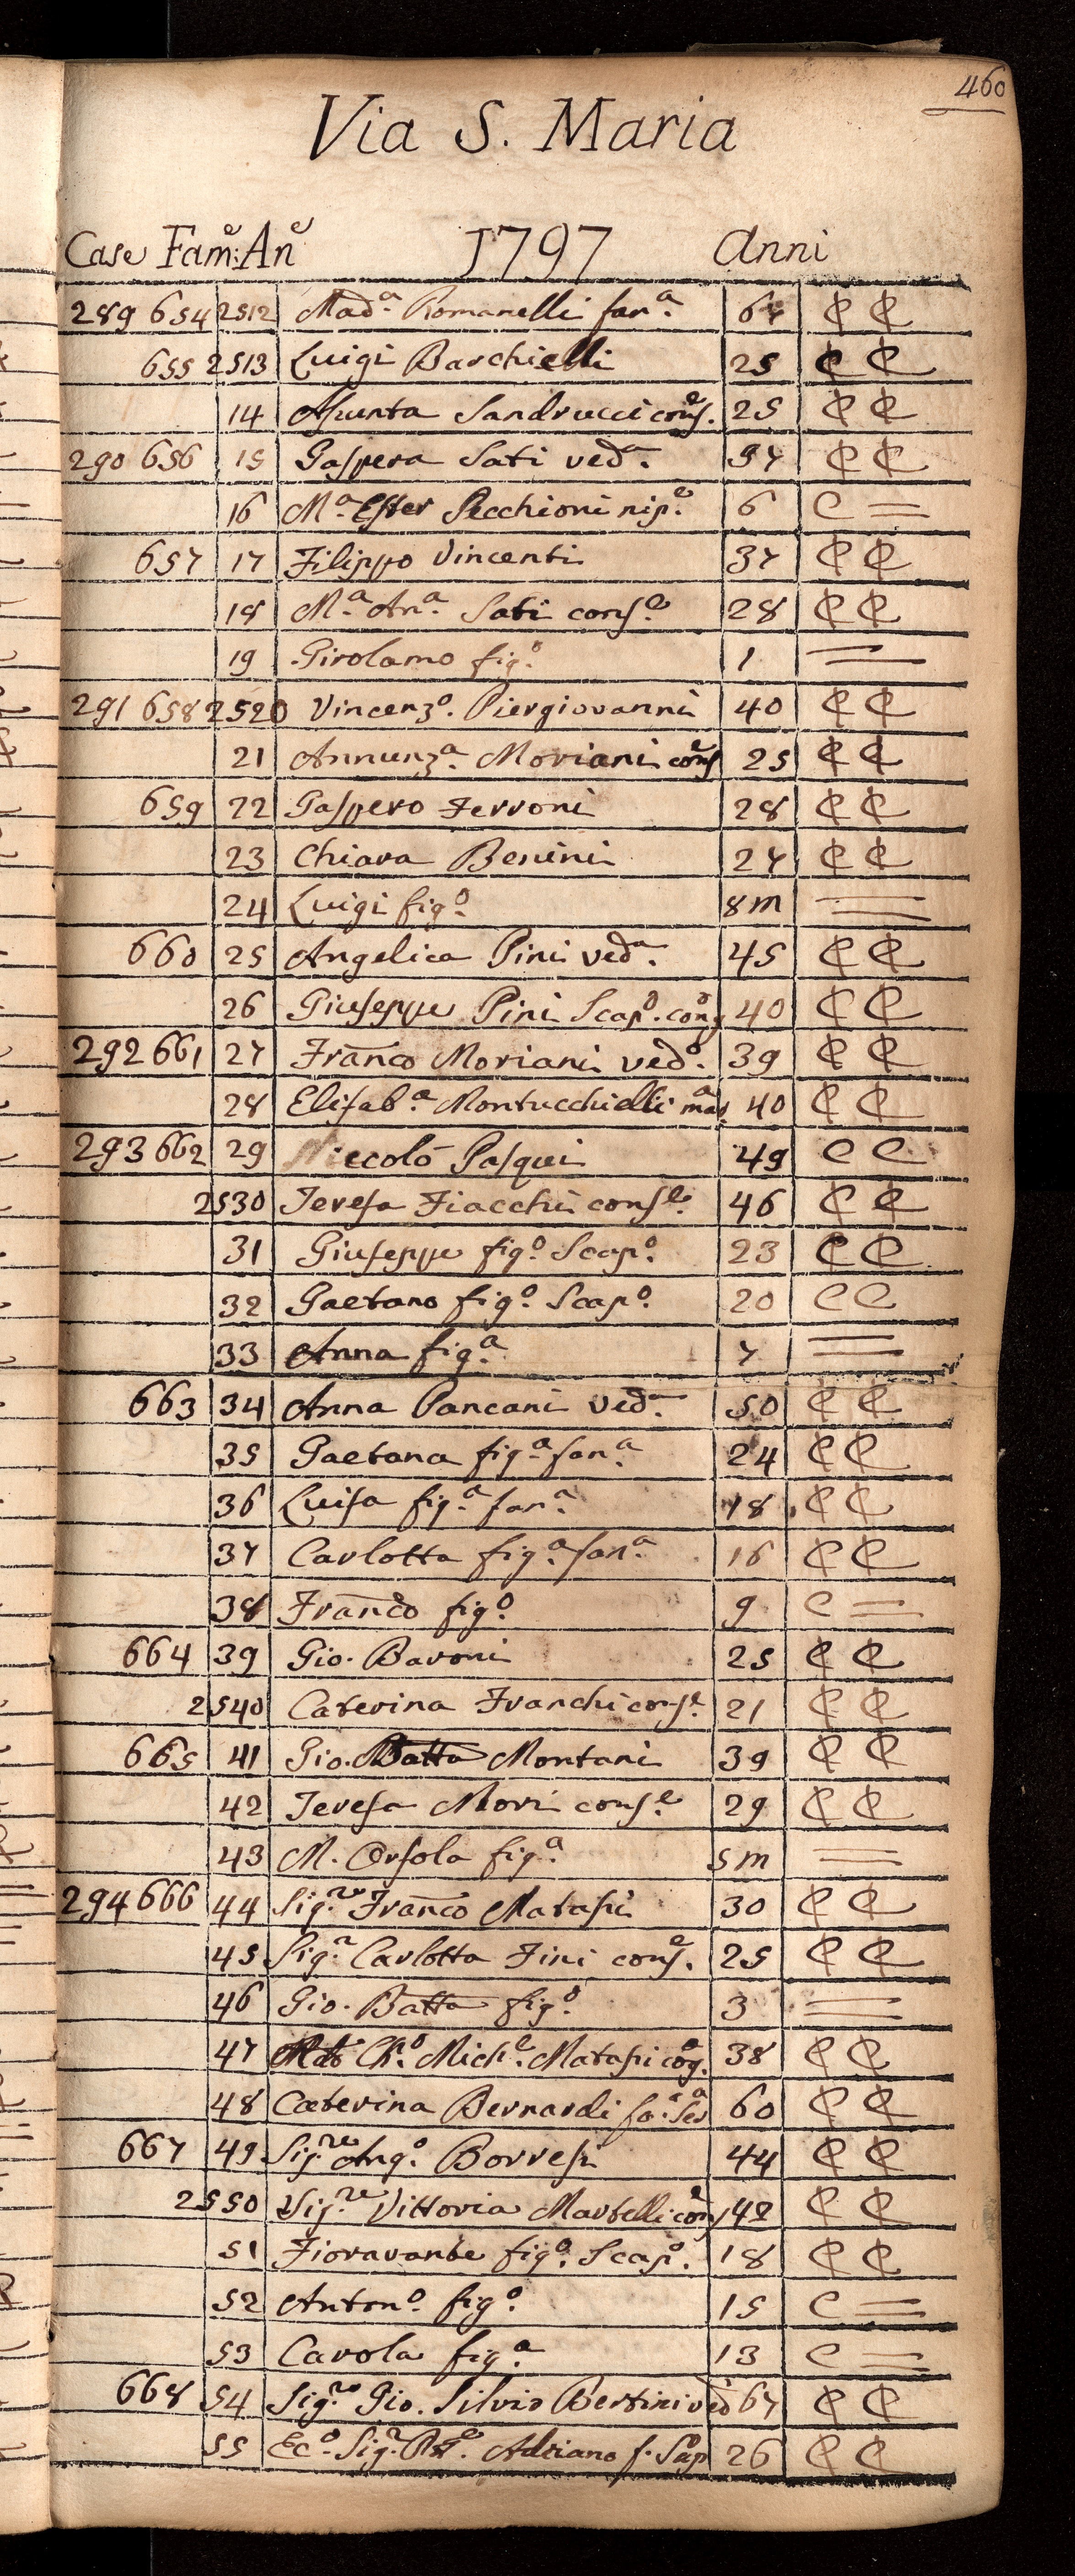 460
Via S. Maria
Case Fam:e An:e 1797 Anni
289 654 2512 Mad.a Romanelli fan.a 67 C C
655 2513 Luigi Barchielli 25 C C
14 Assunta Sandrucci cons.e 25 C C
290 656 15 Gaspera Sati ved.a 57 C C
16 M.a Ester Secchioni nip.e 6 C =
657 17 Filippo Vincenti 37 C C
18 M.a An.a Sati cons.e 28 C C
19 Girolamo fig.o 1 =
291 658 2520 Vincenz.o Piergiovanni 40 C C
21 Annunz.a Moriani cons.e 25 C C
659 22 Gaspero Ferroni 28 C C
23 Chiara Benini 27 C C
24 Luigi fig.o 8m =
660 25 Angelica Pini ved.a 45 C C
26 Giuseppe Pini Scap.o cog.o 40 C C
292 661 27 Franco Moriani ved.o 39 C C
28 Elisab.a Montucchielli mad.a 40 C C
293 662 29 Niccolò Pasqui 49 C C
2530 Teresa Fiacchi cons.e 46 C C
31 Giuseppe fig.o Scap.o 23 C C
32 Gaetano fig.o Scap.o 20 C C
33 Anna fig.a 7 =
663 34 Anna Pancani Ved.a 50 C C
35 Gaetana fig.a fan.a 24 C C
36 Luisa fig.a fan.a 18 C C
37 Carlotta fig.a fan.a 16 C C
38 Franco fig.o 9 C =
664 39 Gio. Baroni 25 C C
2540 Caterina Franchi cons.e 21 C C
665 41 Gio. Batta Montani 39 C C
42 Teresa Mori cons.e 29 C C
43 M. Orsola fig.a 5m =
294 666 44 Sig.re Franco Matassi 30 C C
45 Sig.ra Carlotta Fini cons.e 25 C C
46 Gio. Batta fig.o 3 =
47 Mich.e Matassi cog. 38 C C
48 Caterina Bernardi fa. Ser.a 60 C C
667 49 Sig.re Ang.o Borresi 44 C C
2550 Sig.ra Vittoria Martelli cons.e 42 C C
51 Fioravante fig.o Scap.o 18 C C
52 Anton.o fig.o 15 C =
53 Carola fig.a 13 C =
668 54 Sig.re Gio. Silvio Bertini ved.o 67 C C
55 Ec.o Sig.r Adriano f. Scap. 26 C C